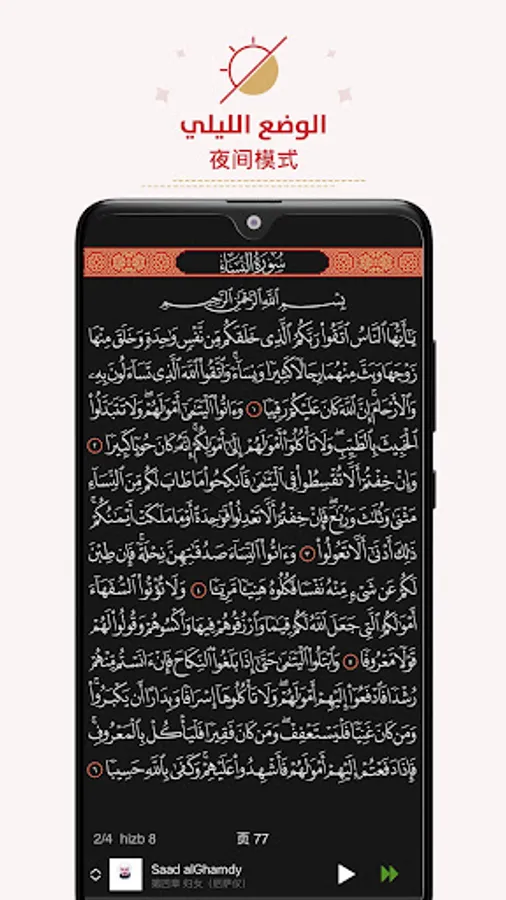 الوضع الليلي
夜间模式
سُورَةُ النِّسَاءِ
بِسْمِ ٱللَّهِ ٱلرَّحْمَٰنِ ٱلرَّحِيمِ
يَٰٓأَيُّهَا ٱلنَّاسُ ٱتَّقُوا۟ رَبَّكُمُ ٱلَّذِى خَلَقَكُم مِّن نَّفْسٍ وَٰحِدَةٍ وَخَلَقَ مِنْهَا
زَوْجَهَا وَبَثَّ مِنْهُمَا رِجَالًا كَثِيرًا وَنِسَآءً ۚ وَٱتَّقُوا۟ ٱللَّهَ ٱلَّذِى تَسَآءَلُونَ بِهِۦ
وَٱلْأَرْحَامَ ۚ إِنَّ ٱللَّهَ كَانَ عَلَيْكُمْ رَقِيبًا ١ وَءَاتُوا۟ ٱلْيَتَٰمَىٰٓ أَمْوَٰلَهُمْ ۖ وَلَا تَتَبَدَّلُوا۟
ٱلْخَبِيثَ بِٱلطَّيِّبِ ۖ وَلَا تَأْكُلُوٓا۟ أَمْوَٰلَهُمْ إِلَىٰٓ أَمْوَٰلِكُمْ ۚ إِنَّهُۥ كَانَ حُوبًا كَبِيرًا ٢
وَإِنْ خِفْتُمْ أَلَّا تُقْسِطُوا۟ فِى ٱلْيَتَٰمَىٰ فَٱنكِحُوا۟ مَا طَابَ لَكُم مِّنَ ٱلنِّسَآءِ
مَثْنَىٰ وَثُلَٰثَ وَرُبَٰعَ ۖ فَإِنْ خِفْتُمْ أَلَّا تَعْدِلُوا۟ فَوَٰحِدَةً أَوْ مَا مَلَكَتْ أَيْمَٰنُكُمْ ۚ
ذَٰلِكَ أَدْنَىٰٓ أَلَّا تَعُولُوا۟ ٣ وَءَاتُوا۟ ٱلنِّسَآءَ صَدُقَٰتِهِنَّ نِحْلَةً ۚ فَإِن طِبْنَ
لَكُمْ عَن شَىْءٍ مِّنْهُ نَفْسًا فَكُلُوهُ هَنِيٓـًٔا مَّرِيٓـًٔا ٤ وَلَا تُؤْتُوا۟ ٱلسُّفَهَآءَ
أَمْوَٰلَكُمُ ٱلَّتِى جَعَلَ ٱللَّهُ لَكُمْ قِيَٰمًا وَٱرْزُقُوهُمْ فِيهَا وَٱكْسُوهُمْ وَقُولُوا۟ لَهُمْ
قَوْلًا مَّعْرُوفًا ٥ وَٱبْتَلُوا۟ ٱلْيَتَٰمَىٰ حَتَّىٰٓ إِذَا بَلَغُوا۟ ٱلنِّكَاحَ فَإِنْ ءَانَسْتُم مِّنْهُمْ
رُشْدًا فَٱدْفَعُوٓا۟ إِلَيْهِمْ أَمْوَٰلَهُمْ ۖ وَلَا تَأْكُلُوهَآ إِسْرَافًا وَبِدَارًا أَن يَكْبَرُوا۟ ۚ
وَمَن كَانَ غَنِيًّا فَلْيَسْتَعْفِفْ ۖ وَمَن كَانَ فَقِيرًا فَلْيَأْكُلْ بِٱلْمَعْرُوفِ ۚ
فَإِذَا دَفَعْتُمْ إِلَيْهِمْ أَمْوَٰلَهُمْ فَأَشْهِدُوا۟ عَلَيْهِمْ ۚ وَكَفَىٰ بِٱللَّهِ حَسِيبًا ٦
2/4 hizb 8 页 77
Saad alGhamdy
第四章 妇女（尼萨仪）